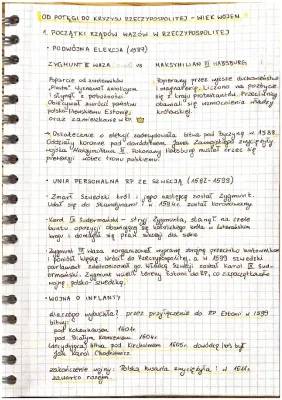 OD POTĘGI DO KRYZYSU RZECZYPOSPOLITEJ - WIEK WOJEN
1. POCZĄTKI RZĄDÓW WAZÓW W RZECZYPOSPOLITEJ
• PODWÓJNA ELEKCJA (1587)
ZYGMUNT III WAZA vs MAKSYMILIAN III HABSBURG
Poparcie od zwolenników Popierany przez wyższe duchowieństwo
"Piasta". Wyznawał katolicyzm i magnaterię. Liczono na pozycję
i słynął z pobożności. się z kraju protestantów. Przeciwnicy
Obiecywał zwrócić państwu obawiali się wzmocnienia władzy
polsko-litewskiemu Estonię królewskiej.
oraz zamieszkanie w
→ Ostatecznie o elekcji zadecydowała bitwa pod Byczyną w 1588.
Oddziały koronne pod dowództwem Jana Zamoyskiego zwyciężyły
wojska Maksymiliana III. Pokonany Habsburg musiał zrzec się
pretensji wobec tronu polskiego.
• UNIA PERSONALNA RP ZE SZWECJĄ (1592-1599)
- Zmarł szwedzki król i jego następcą został Zygmunt.
Udał się do Skandynawii i w 1594r. został koronowany.
- Karol Sudermański - stryj Zygmunta, stanął na czele
opozycji obawiającej się katolickiego króla w luterańskim
kraju i domagała się praw władzy dla siebie
- Zygmunt III Waza zorganizował wyprawę zbrojną przeciwko buntownikom
i poniósł klęskę. Wrócił do Rzeczypospolitej, a w 1599 szwedzki
parlament zdetronizował go. Władcą Szwecji został Karol IX Sudermański.
Zygmunt wcielił Estonię do RP, co zapoczątkowało
wojnę polsko-szwedzką.
• WOJNA O INFLANTY
dlaczego wybuchła? przez przyłączenie do RP Estonii w 1599
bitwy:
pod Kokenhausen 1601r.
pod Białym Kamieniem 1604r.
decydująca bitwa pod Kircholmem 1605r. dowódcą był
Jan Karol Chodkiewicz
zakończenie wojny: Polska husaria zwyciężyła i w 1611r.
zawarto rozejm.